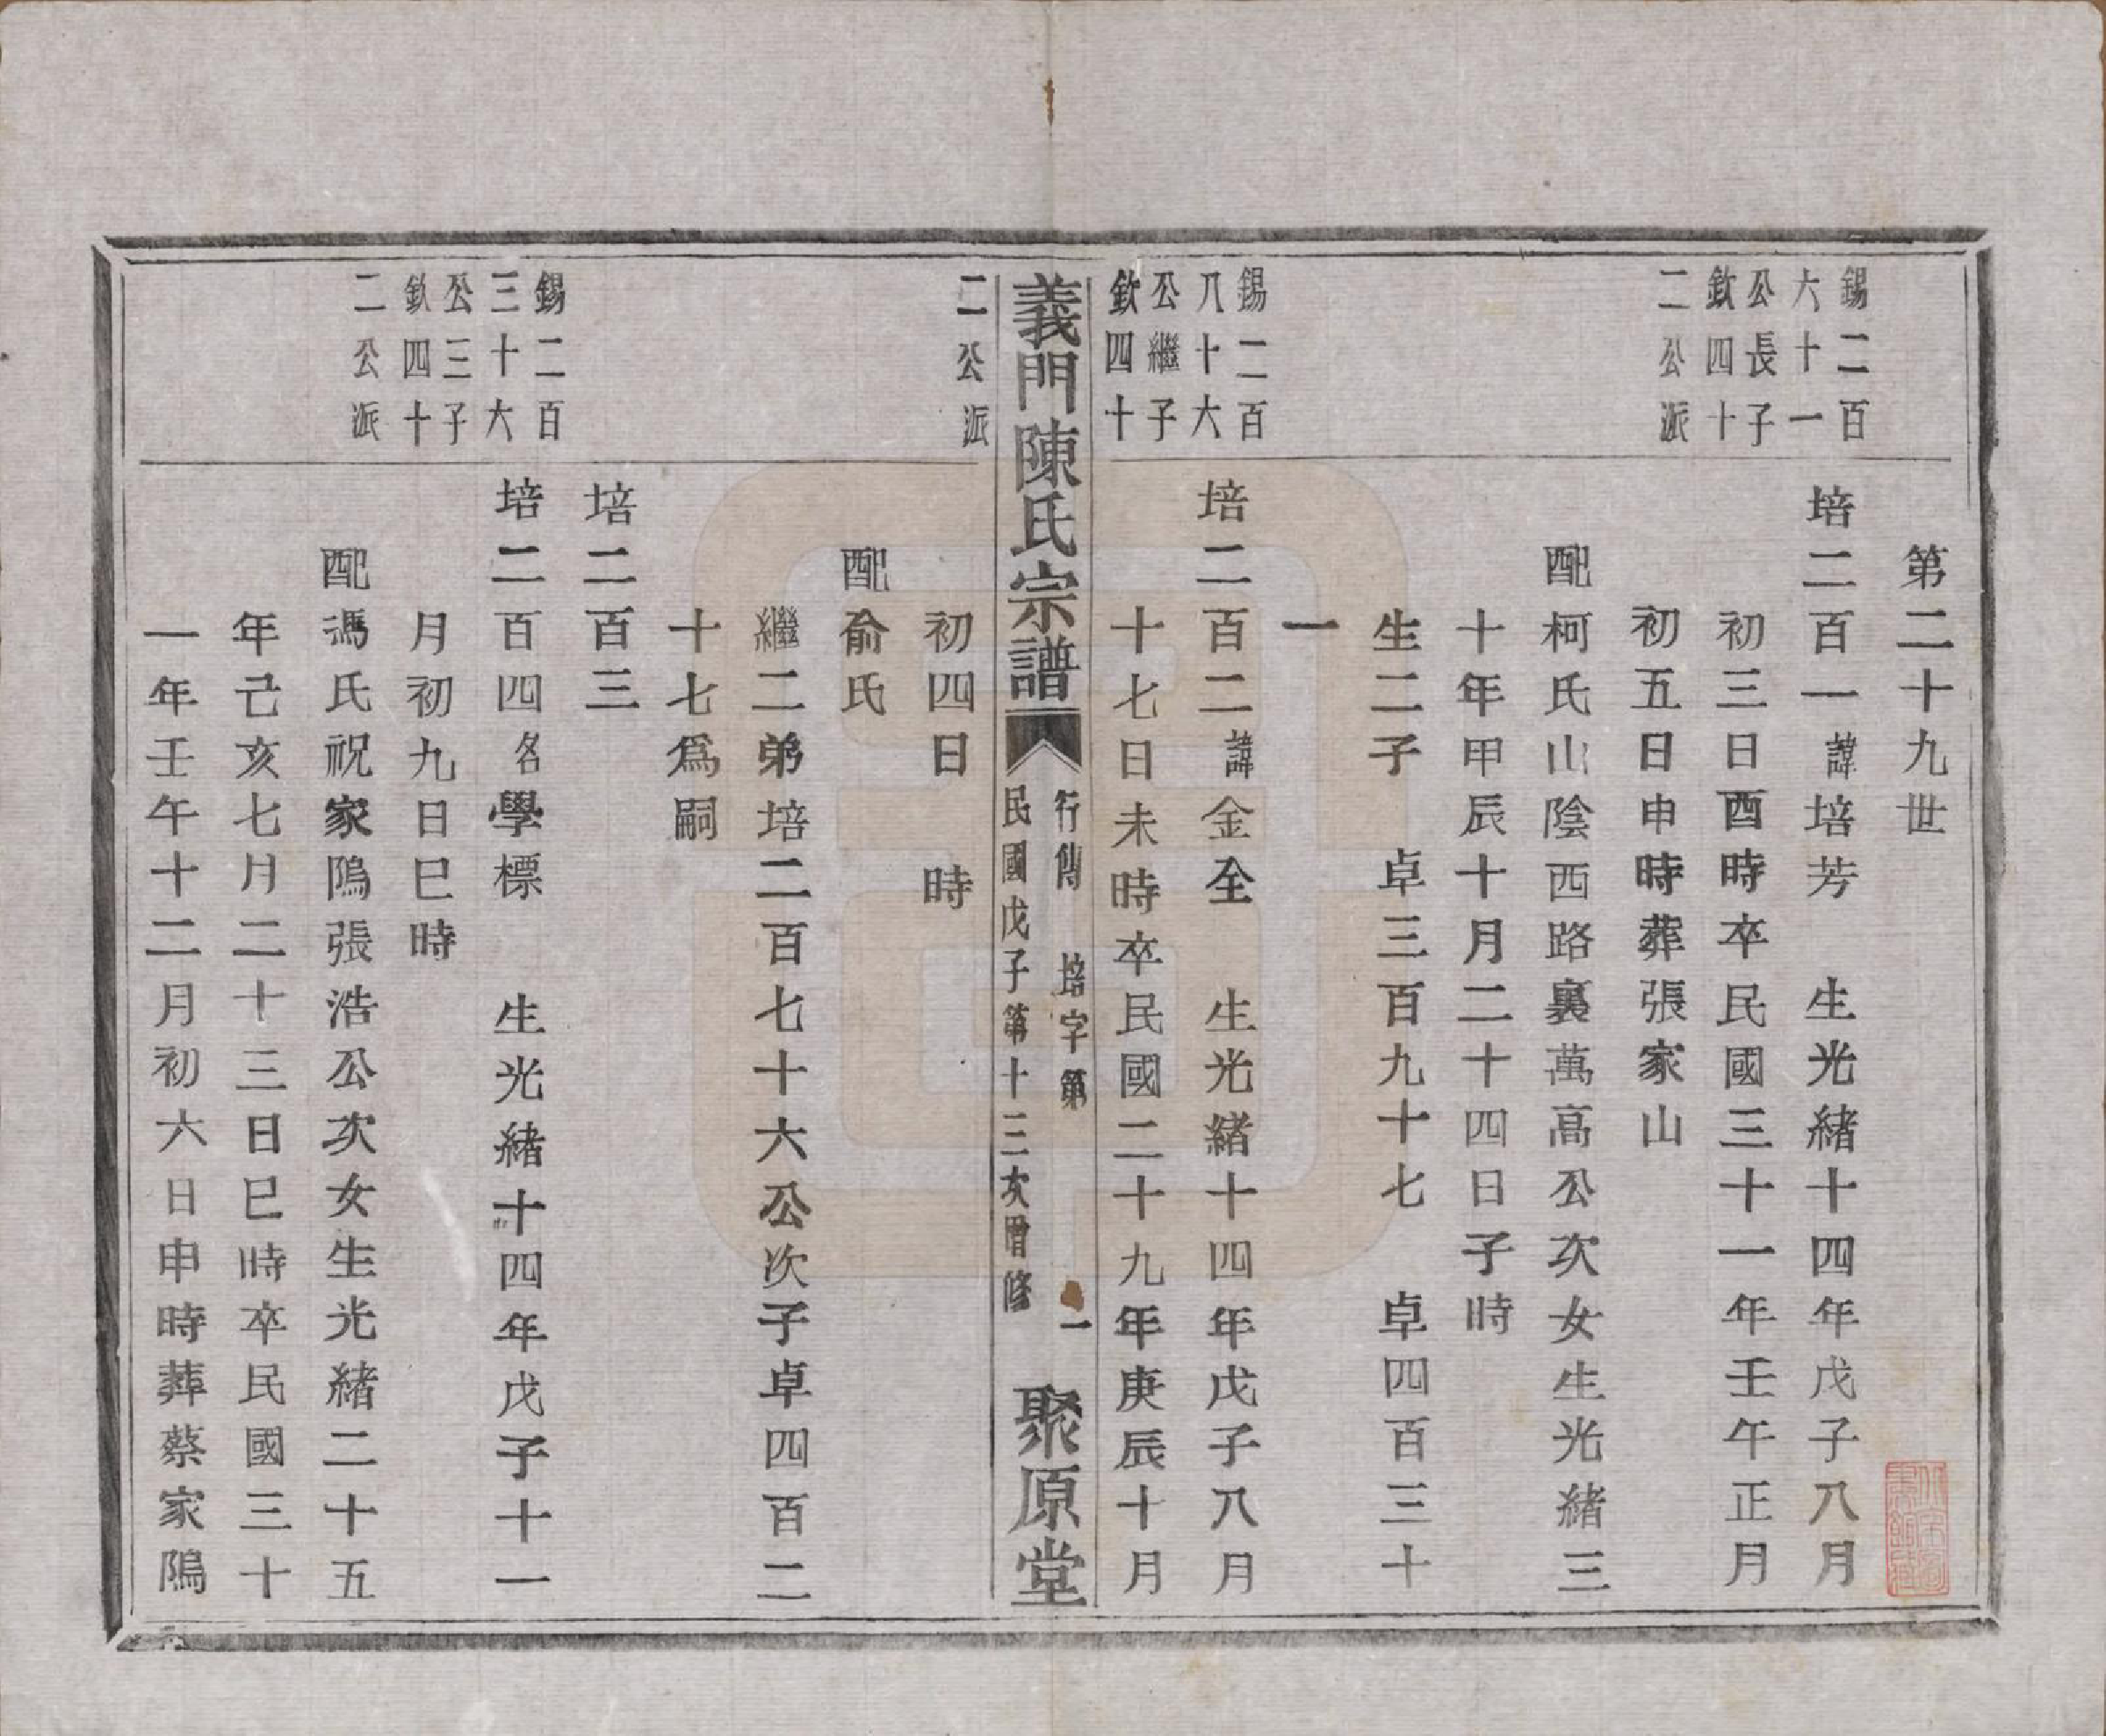 第二十九世
錫二百
六十一
公長子
欽四十
二公派
培二百一諱培芳　生光緒十四年戊子八月
初三日酉時卒民國三十一年壬午正月
初五日申時葬張家山
配柯氏山陰西路裏萬高公次女生光緒三
十年甲辰十月二十四日子時
生二子　卓三百九十七　卓四百三十
一
錫二百
八十六
公繼子
欽四十
培二百二諱金全　生光緒十四年戊子八月
十七日未時卒民國二十九年庚辰十月
義門陳氏宗譜
行傳　培字第　一
民國戊子第十三次增修
聚原堂
二公派
初四日　時
配俞氏
繼二弟培二百七十六公次子卓四百二
十七爲嗣
培二百三
錫二百
三十六
公三子
欽四十
二公派
培二百四名學標　生光緒十四年戊子十一
月初九日巳時
配馮氏祝家隝張浩公次女生光緒二十五
年己亥七月二十三日巳時卒民國三十
一年壬午十二月初六日申時葬蔡家隝